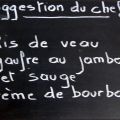 ggestion du chef
is de veau
gaufre au jambo
et sauge
ème de bourbo